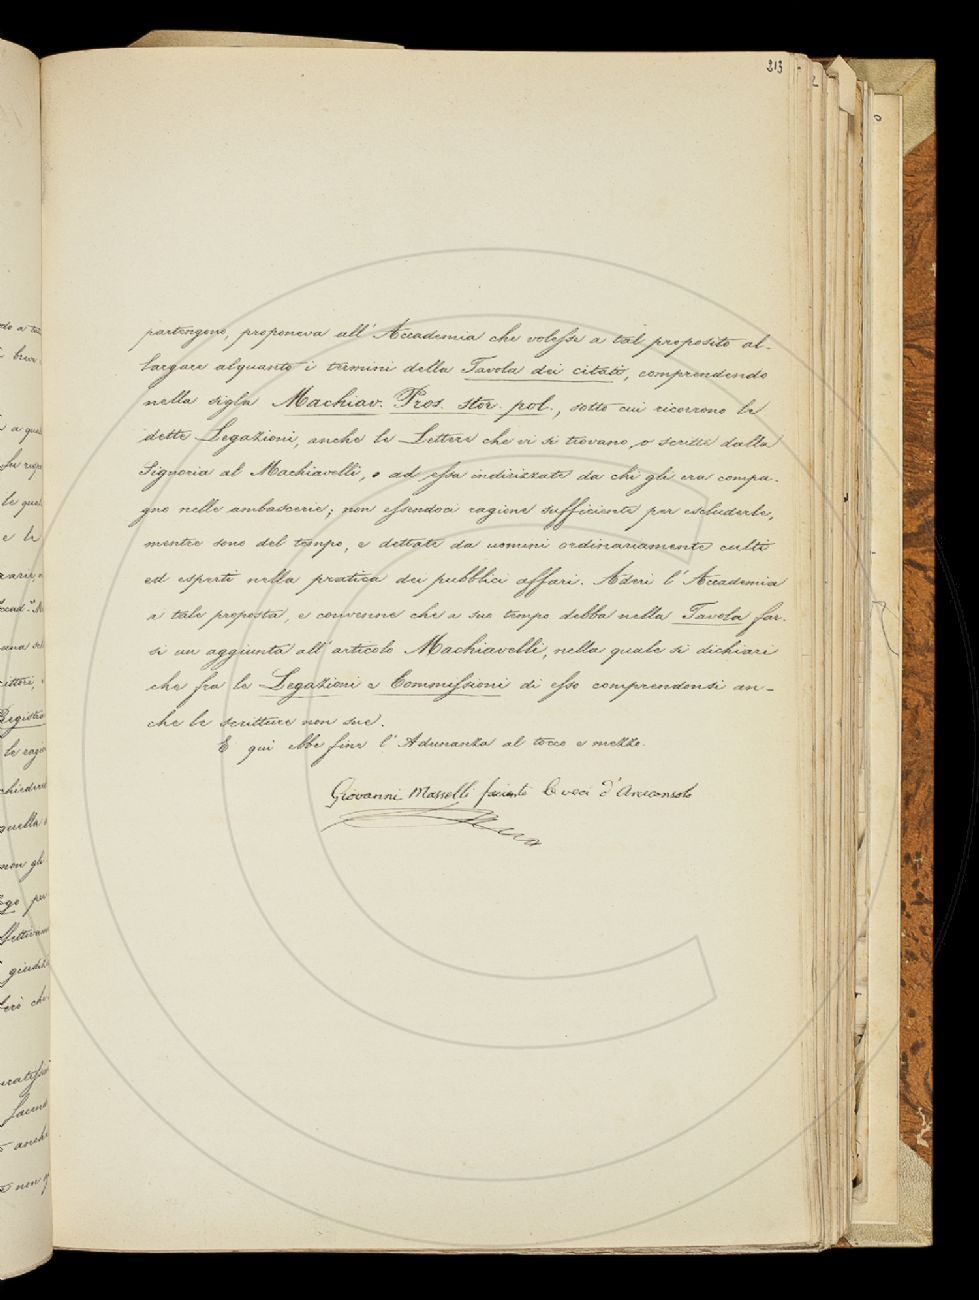 213
partengono, proponeva all'Accademia che volesse a tal proposito al-
largare alquanto i termini della Tavola dei citati, comprendendo
nella sigla Machiav. Pros. stor. pol., sotto cui ricorrono le
dette Legazioni, anche le Lettere che vi si trovano, o scritte dalla
Signoria al Machiavelli, o ad essa indirizzate da chi gli era compa-
gno nelle ambascerie; non essendoci ragione sufficiente per escluderle,
mentre sono del tempo, e dettate da uomini ordinariamente culti
ed esperti nella pratica dei pubblici affari. Aderì l'Accademia
a tale proposta, e convenne che a suo tempo debba nella Tavola far-
si un aggiunta all'articolo Machiavelli, nella quale si dichiari
che fra le Legazioni e Commissioni di esso comprendonsi an-
che le scritture non sue.
E qui ebbe fine l'Adunanza al tocco e mezzo.
Giovanni Masselli facente le veci d'Arciconsolo